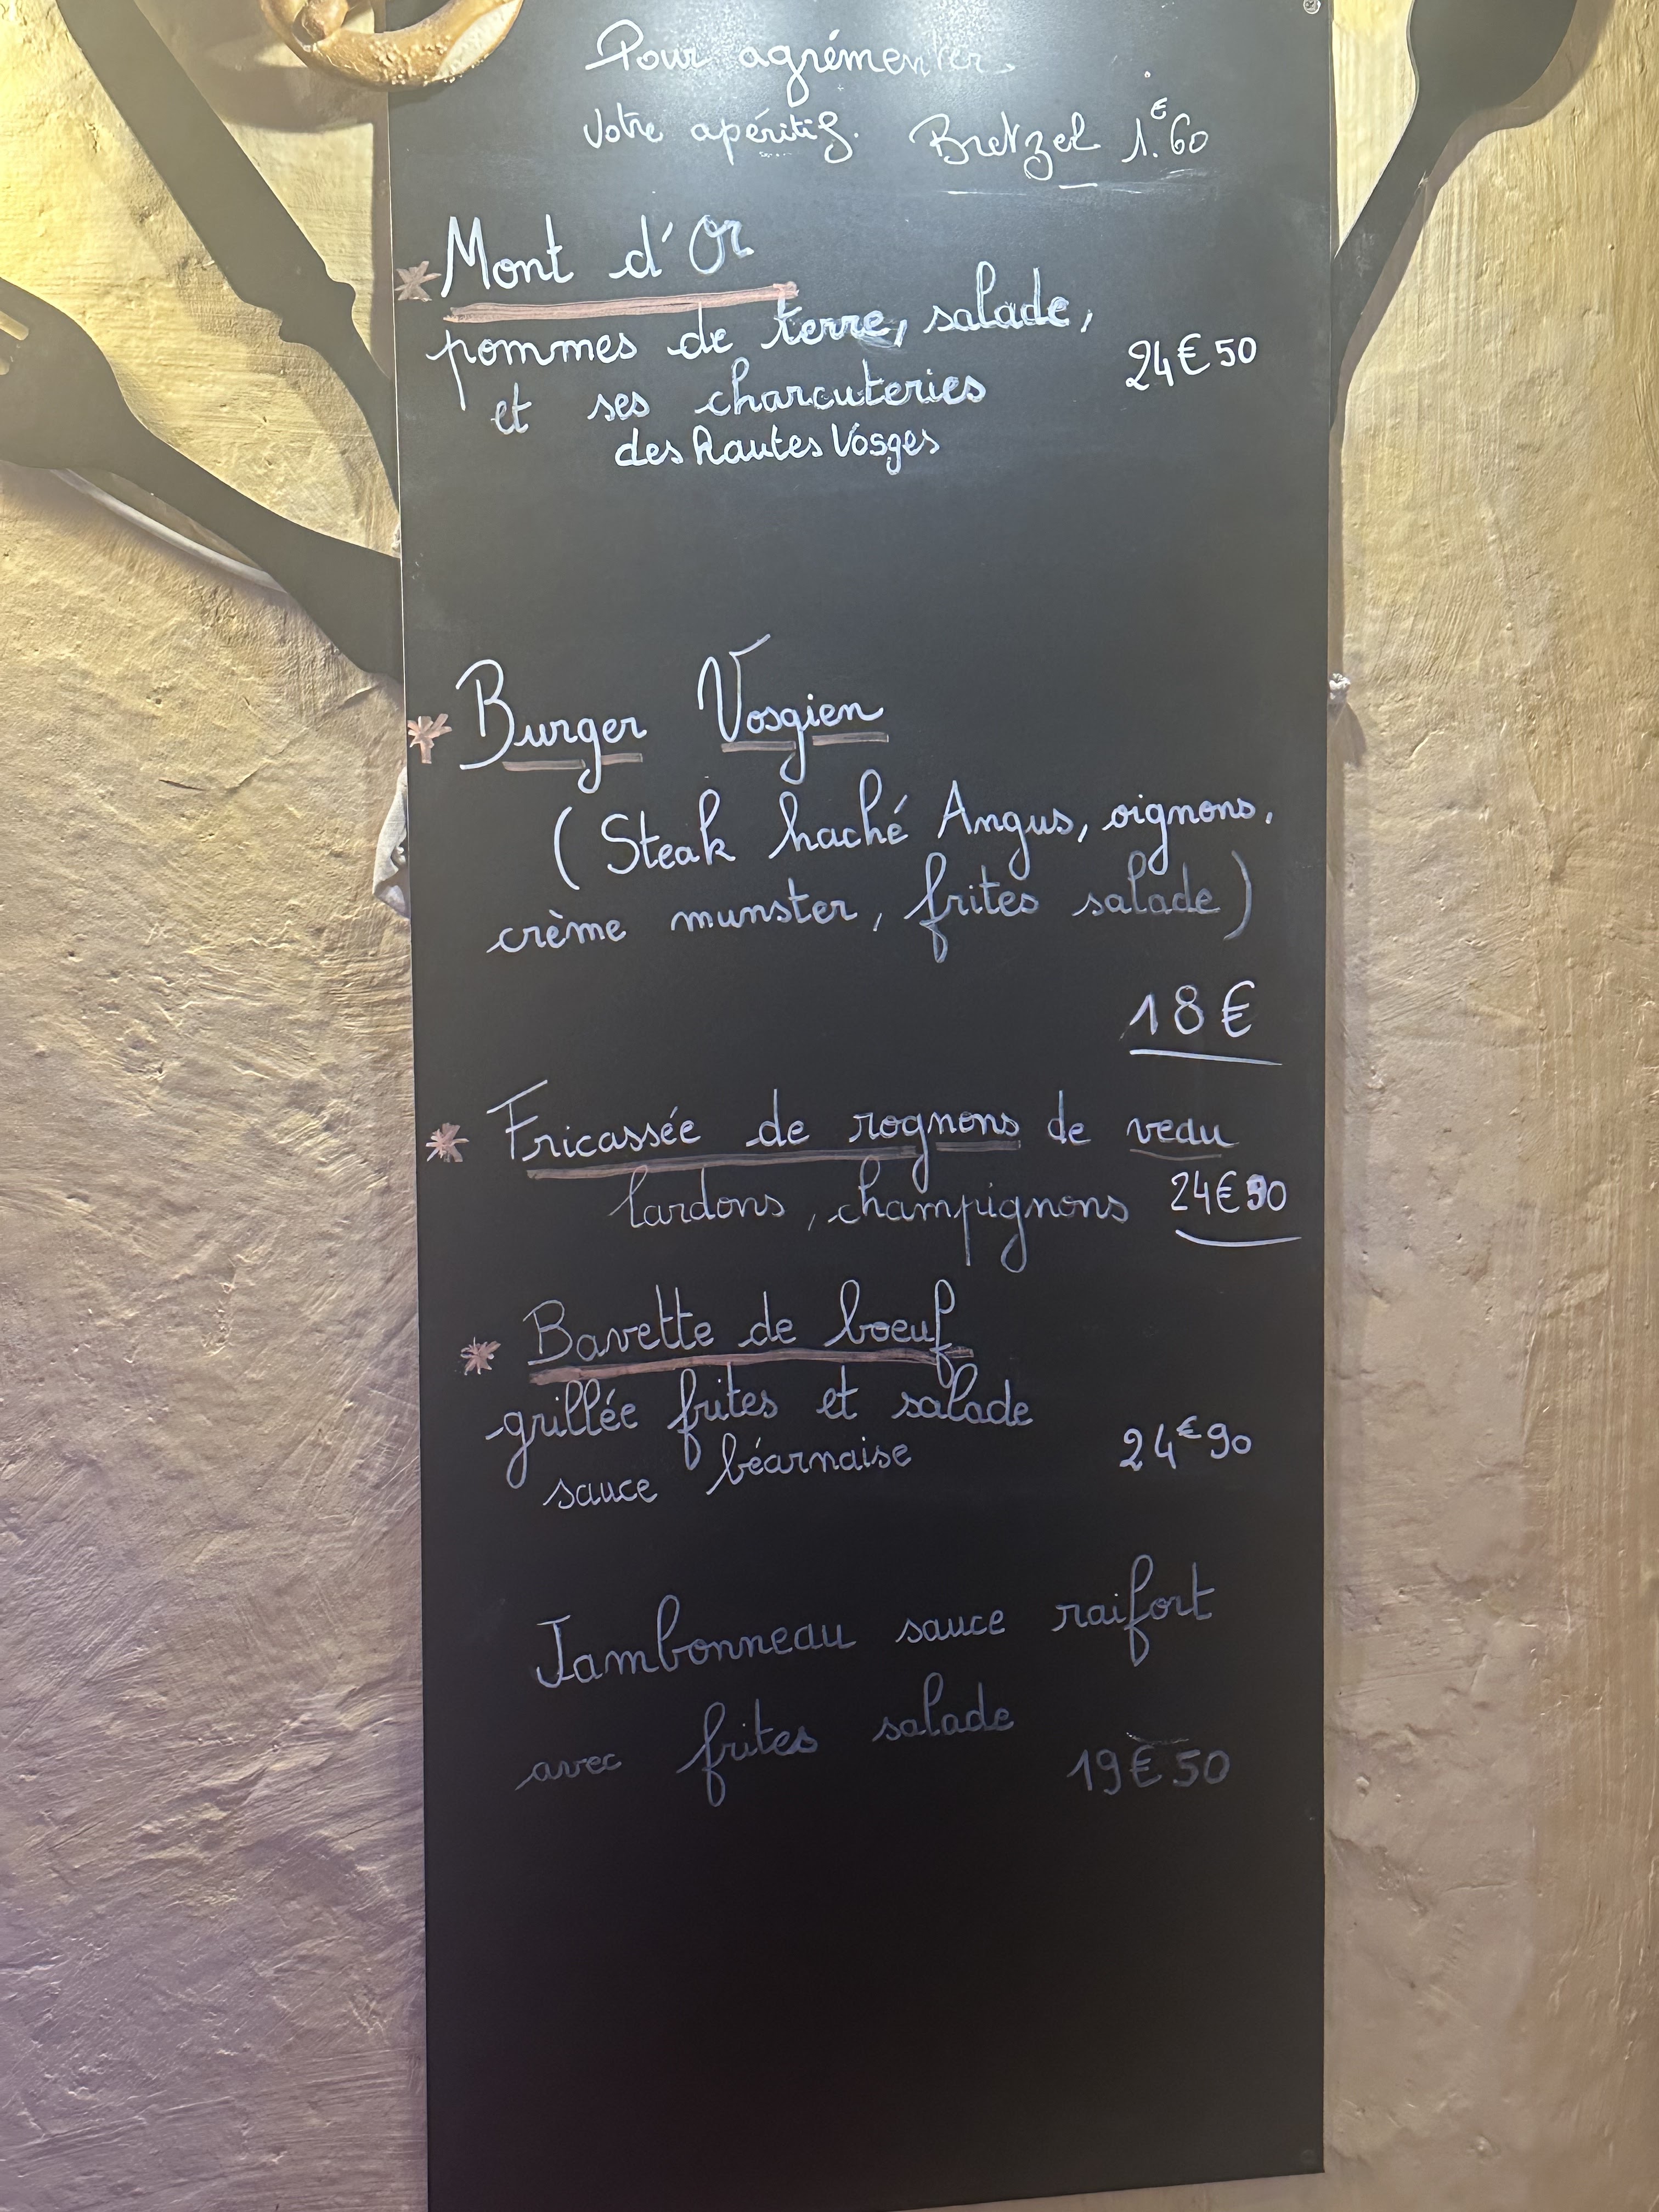 Pour agrémenter
votre apéritif. Bretzel 1.€60
* Mont d'Or
pommes de terre, salade,
et ses charcuteries 24€50
des Hautes Vosges
* Burger Vosgien
(Steak haché Angus, oignons,
crème munster, frites salade)
18€
* Fricassée de rognons de veau
lardons, champignons 24€90
* Bavette de boeuf
grillée frites et salade
sauce béarnaise 24€90
Jambonneau sauce raifort
avec frites salade
19€50